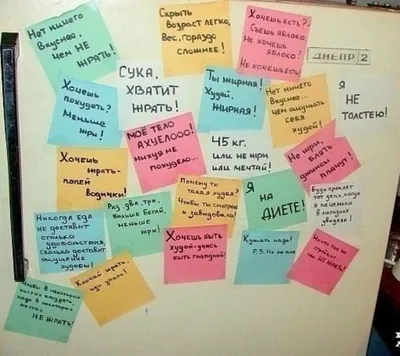 Нет ничего
вкуснее,
чем НЕ
ЖРАТЬ!
Скрыть
возраст легко,
Вес, гораздо
сложнее!
Хочешь есть?
Съешь яблоко
Не хочешь
яблоко?
Не хочешь есть
ДНЕПР 2
Хочешь
похудеть?
Меньше
жри!
СУКА,
ХВАТИТ
ЖРАТЬ!
Ты жирная!
Худей,
ЖИРНАЯ!
Нет ничего
вкуснее...
чем ощущать
себя
худой!
Я
НЕ
ТОЛСТЕЮ!
МОЁ ТЕЛО
АХУЕЛООО:
нихуя не
похудело...
45 кг.
или не жри
или мечтай!
Не жри,
блять
джинсы
плачут!
Хочешь
жрать-
попей
водички!
Почему ты
такая худая?
Чтобы ты смотрела
и завидовала!
Я
на
ДИЕТЕ!
Будь проклят
тот день, когда
я
Никогда еда
не доставит
столько
удовольствия,
сколько доставит
ощущение
худобы!
Раз, два, три,
Больше бегай,
меньше
жри!
Хочешь быть
худой-учись
быть голодной!
Кушать надо!
P.S. Но не
НЕ ЖРАТЬ!
Кончай жрать,
иди учись!
Чтобы в некоторых
местах похудеть,
надо в некоторых
местах
НЕ ЖРАТЬ!